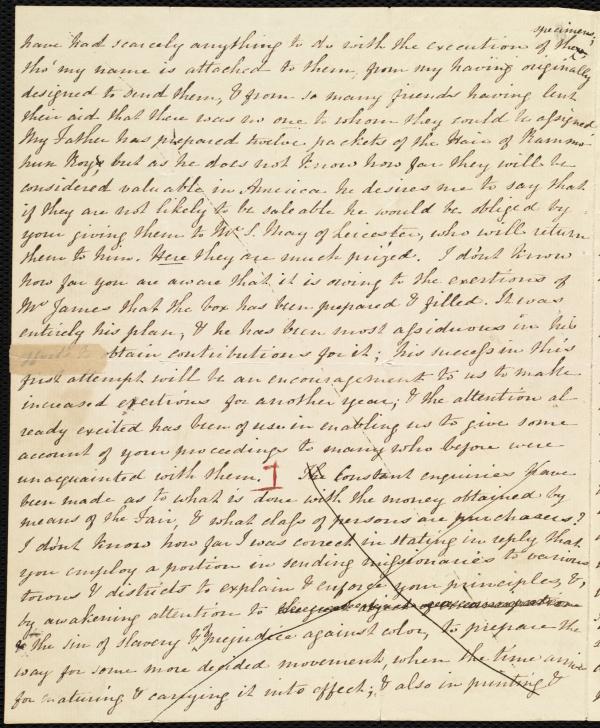 specimens;
have had scarcely anything to do with the execution of these,
tho' my name is attached to them, from my having originally
designed to send them, & from so many friends having lent
their aid that there was no one to whom they could be assigned
My Father has prepared twelve packets of the Hair of Rammo
hun Roy, but as he does not know how far they will be
considered valuable in America he desires me to say that
if they are not likely to be saleable he would be obliged by
your giving them to Mr S. May of Leicester, who will return
them to him. Here they are much prized. I don't know
how far you are aware that it is owing to the exertions of
Mr James that the box has been prepared & filled. It was
entirely his plan, & he has been most assiduous in his
efforts to obtain contributions for it; his success in this
first attempt will be an encouragement to us to make
increased exertions for another year; & the attention al
ready excited has been of use in enabling us to give some
account of your proceedings to many who before were
unacquainted with them. I The constant enquiries have
been made as to what is done with the money obtained by
means of the Fair, & what class of persons are purchasers?
I don't know how far I was correct in stating in reply that
you employ a portion in sending missionaries to various
towns & districts to explain & enforce your principles, &,
by awakening attention to
the sin of slavery & prejudice against color, to prepare the
way for some more decided movement, when the time arrive
for maturing & carrying it into effect; & also in printing &